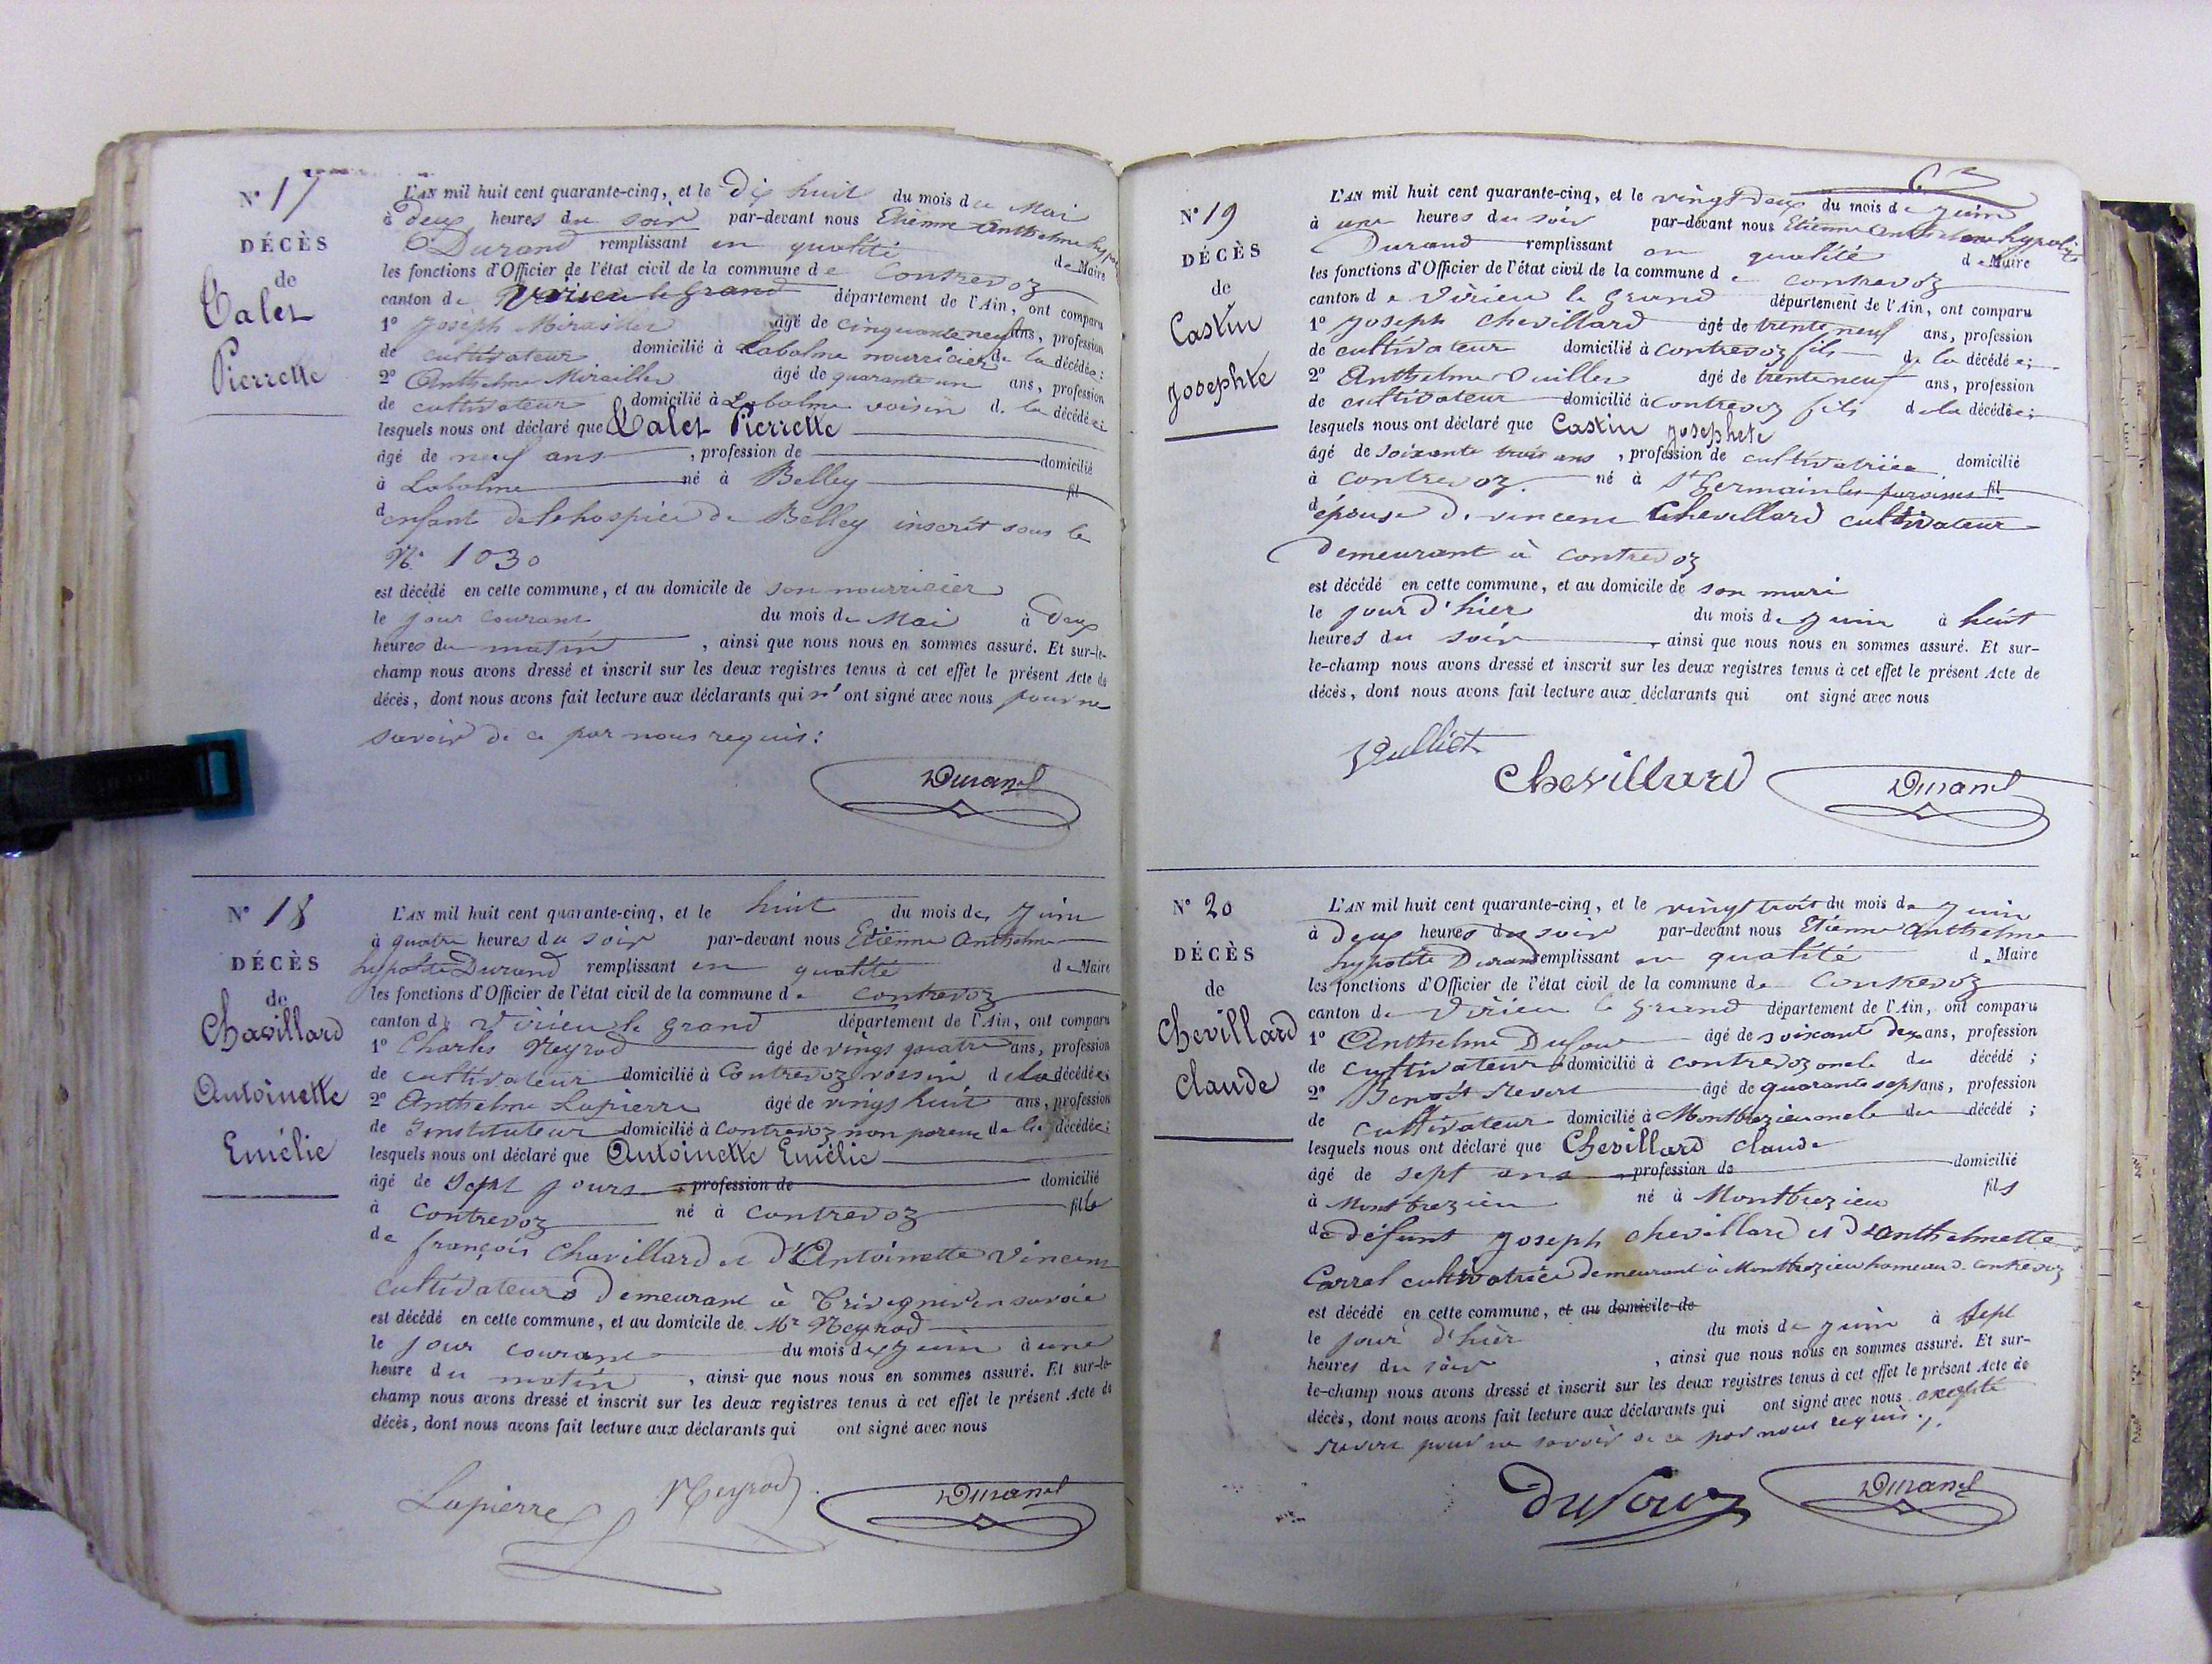 N° 17
DÉCÈS
de
Calet
Pierrette
L'AN mil huit cent quarante-cinq, et le dix huit du mois de Mai
à deux heures du soir par-devant nous Etienne Anthelme
Durand remplissant en qualité de Maire
les fonctions d'Officier de l'état civil de la commune de Contrevoz
canton de Virieu le Grand département de l'Ain, ont comparu
1° Joseph âgé de cinquante neuf ans, profession
de cultivateur domicilié à Labalme nourricier de la décédée;
2° Anthelme âgé de quarante un ans, profession
de cultivateur domicilié à Labalme voisin de la décédée;
lesquels nous ont déclaré que Calet Pierrette
âgé de neuf ans, profession de domicilié
à Labalme né à Belley fil
d enfant de lehospice de Belley inscrit sous le
N° 1030
est décédé en cette commune, et au domicile de son nourricier
le jour courant du mois de Mai à deux
heures du matin, ainsi que nous nous en sommes assuré. Et sur-le-
champ nous avons dressé et inscrit sur les deux registres tenus à cet effet le présent Acte de
décès, dont nous avons fait lecture aux déclarants qui n'ont signé avec nous pour ne
savoir de ce par nous requis:
Durand
N° 18
DÉCÈS
de
Chavillard
Antoinette
Emélie
L'AN mil huit cent quarante-cinq, et le huit du mois de Juin
à quatre heures du soir par-devant nous Etienne Anthelme
hypolite Durand remplissant en qualité de Maire
les fonctions d'Officier de l'état civil de la commune de contrevoz
canton de Virieu le grand département de l'Ain, ont comparu
1° Charles Neyrod âgé de vingt quatre ans, profession
de cultivateur domicilié à Contrevoz voisin de la décédée;
2° Anthelme Lapierre âgé de vingt huit ans, profession
de Instituteur domicilié à Contrevoz non parent de la décédée;
lesquels nous ont déclaré que Antoinette Emélie
âgé de Sept jours, profession de domicilié
à Contrevoz né à Contrevoz fille
de françois Chavillard et d'Antoinette Vincent
cultivateurs demeurant à en savoie
est décédé en cette commune, et au domicile de Mr Neyrod
le jour courant du mois de juin à une
heure du matin, ainsi que nous nous en sommes assuré. Et sur-le-
champ nous avons dressé et inscrit sur les deux registres tenus à cet effet le présent Acte de
décès, dont nous avons fait lecture aux déclarants qui ont signé avec nous
Lapierre Neyrod Durand
N° 19
DÉCÈS
de
Castin
Josephte
L'AN mil huit cent quarante-cinq, et le vingt deux du mois de juin
à une heures du soir par-devant nous Etienne Anthelme hypolite
Durand remplissant en qualité de Maire
les fonctions d'Officier de l'état civil de la commune de contrevoz
canton de Virieu le grand département de l'Ain, ont comparu
1° Joseph Chevillard âgé de trente neuf ans, profession
de cultivateur domicilié à contrevoz fils de la décédée;
2° Anthelme âgé de trente neuf ans, profession
de cultivateur domicilié à Contrevoz fils de la décédée;
lesquels nous ont déclaré que Castin Josephte
âgé de soixante trois ans, profession de cultivatrice domicilié
à contrevoz né à St Germain les paroisses fil
d'épouse de vincent Chevillard cultivateur
demeurant à contrevoz
est décédé en cette commune, et au domicile de son mari
le jour d'hier du mois de juin à huit
heures du soir, ainsi que nous nous en sommes assuré. Et sur-
le-champ nous avons dressé et inscrit sur les deux registres tenus à cet effet le présent Acte de
décès, dont nous avons fait lecture aux déclarants qui ont signé avec nous
Chevillard Durand
N° 20
DÉCÈS
de
Chevillard
Claude
L'AN mil huit cent quarante-cinq, et le vingt trois du mois de juin
à deux heures du soir par-devant nous Etienne Anthelme
hypolite Durand remplissant en qualité de Maire
les fonctions d'Officier de l'état civil de la commune de Contrevoz
canton de Virieu le grand département de l'Ain, ont comparu
1° Anthelme Dufour âgé de soixante dix ans, profession
de cultivateur domicilié à contrevoz oncle du décédé;
2° Benoit Revert âgé de quarante sept ans, profession
de cultivateur domicilié à Montbrezieu oncle du décédé;
lesquels nous ont déclaré que Chevillard Claude
âgé de sept ans profession de domicilié
à Montbrezieu né à Montbrezieu fils
de défunt Joseph chevillard et d'Anthelmette
Carrel cultivatrice demeurant à Montbrezieu hameau de Contrevoz
est décédé en cette commune, et au domicile de
le jour d'hier du mois de juin à sept
heures du soir, ainsi que nous nous en sommes assuré. Et sur-
le-champ nous avons dressé et inscrit sur les deux registres tenus à cet effet le présent Acte de
décès, dont nous avons fait lecture aux déclarants qui ont signé avec nous excepté
Revert pour ne savoir de ce par nous requis.
Dufour Durand